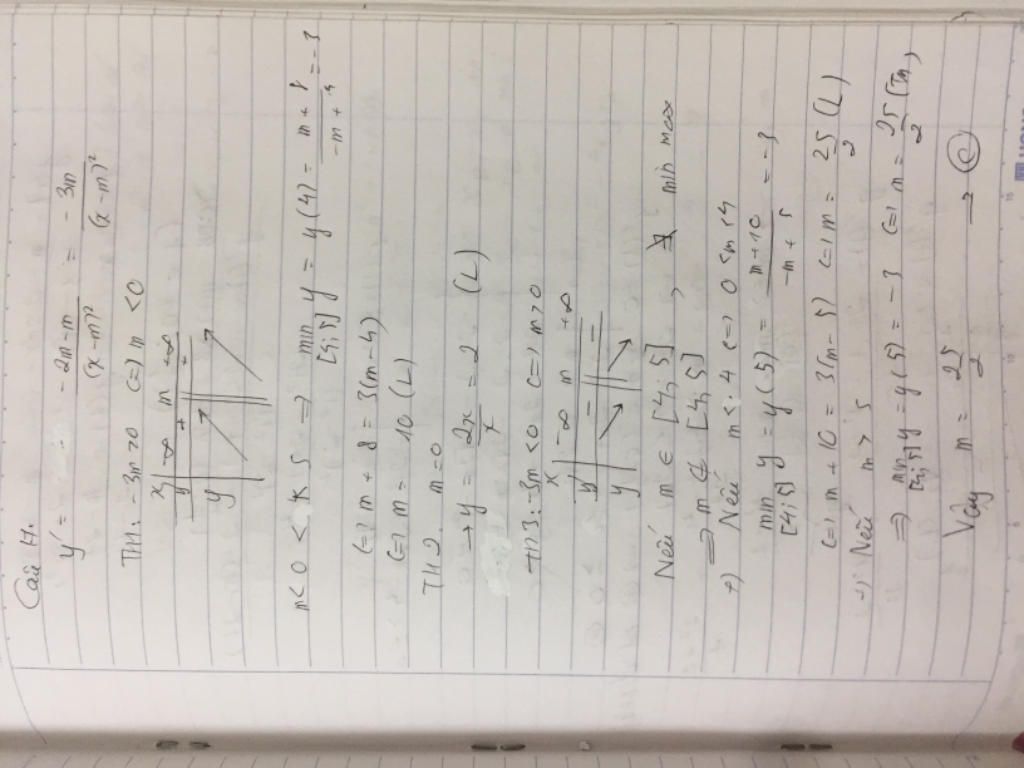 Câu 17.
y' = -2m-m / (x-m)² = -3m / (x-m)²
TH1: -3m > 0 (=) m < 0
x | -∞ m +∞
y' | + +
y
m < 0 < 4 < 5 => min y = y(4) = m + 8 / -m + 4 = -3
[4;5]
(=) m + 8 = 3(m-4)
(=) m = 10 (L)
TH2. m=0
→ y = 2x / x = 2 (L)
TH3: -3m < 0 (=) m > 0
x | -∞ m +∞
y' | - -
y
Nếu m ∈ [4;5], ∄ min max
=> m ∉ [4;5]
+) Nếu m < 4 (=) 0 < m < 4
min y = y(5) = m+10 / -m+5 = -3
[4;5]
(=) m + 10 = 3(m-5) (=) m = 25/2 (L)
+) Nếu m > 5
=> min y = y(5) = -3 (=) m = 25/2 (Tm)
[4;5]
Vậy m = 25/2 → C